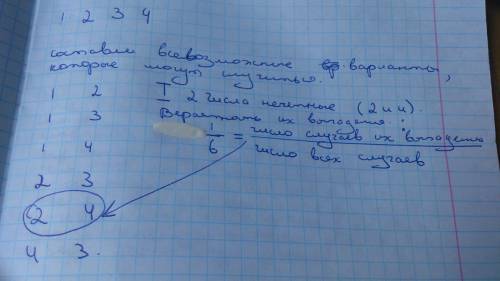 1 2 3 4
составим всевозможные варианты,
которые могут случиться.
1 2
I 2 числа нечетные (2 и 4).
1 3
Вероятность их выпадения:
1/6 = число случаев их выпадения / число всех случаев
1 4
2 3
2 4
4 3.